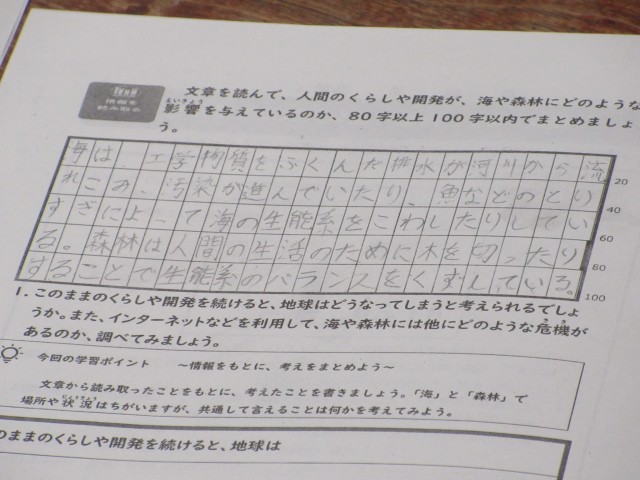 情報を
読み取る
文章を読んで、人間のくらしや開発が、海や森林にどのような
えいきょう
影響を与えているのか、80字以上100字以内でまとめましょ
う。
海は、工学物質をふくんだ排水が河川から流
20
れこみ、汚染が進んでいたり、魚などのとり
40
すぎによって海の生態系をこわしたりしてい
60
る。森林は人間の生活のために木を切ったり
80
することで生態系のバランスをくずしている。
100
1.このままのくらしや開発を続けると、地球はどうなってしまうと考えられるでしょ
うか。また、インターネットなどを利用して、海や森林には他にどのような危機が
あるのか、調べてみましょう。
今回の学習ポイント ～情報をもとに、考えをまとめよう～
文章から読み取ったことをもとに、考えたことを書きましょう。「海」と「森林」で
じょうきょう
場所や状況はちがいますが、共通して言えることは何かを考えてみよう。
のままのくらしや開発を続けると、地球は